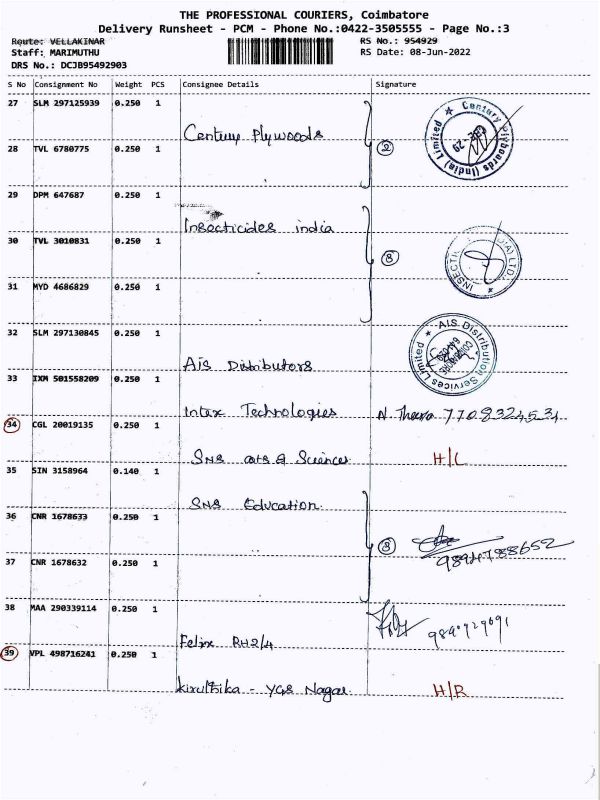 THE PROFESSIONAL COURIERS, Coimbatore
Delivery Runsheet - PCM - Phone No.:0422-3505555 - Page No.:3
Route: VELLAKINAR
RS No.: 954929
Staff: MARIMUTHU
RS Date: 08-Jun-2022
DRS No.: DCJB95492903
S No Consignment No Weight PCS Consignee Details Signature
27 SLM 297125939 0.250 1
Century Plywoods
2
Century Plyboards (India) Limited
28 TVL 6780775 0.250 1
29 DPM 647687 0.250 1
Insecticides india
30 TVL 3010831 0.250 1
3
31 MYD 4686829 0.250 1
32 SLM 297130845 0.250 1
AIS Distributors
AIS Distribution Services Limited
33 IXM 501558209 0.250 1
Intex Technologies
7708324534
34 CGL 20019135 0.250 1
SNS arts & Sciences
H/C
35 SIN 3158964 0.140 1
SNS Education
36 CNR 1678633 0.250 1
3
9894788652
37 CNR 1678632 0.250 1
38 MAA 290339114 0.250 1
Felix RH2/4
39 VPL 498716241 0.250 1
Kiruthika - YGS Nagar
H/R